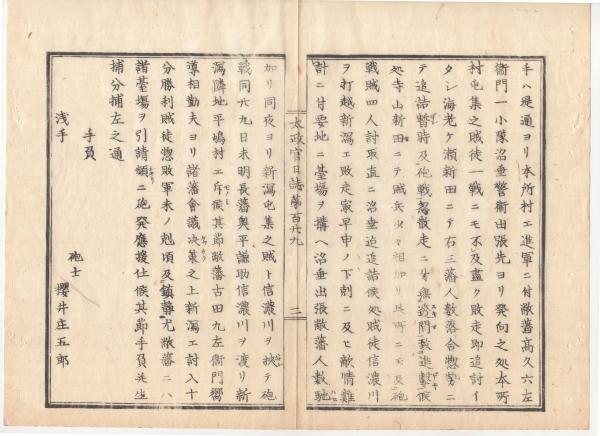 手ハ堤通ヨリ本所村エ進軍ニ付敝藩髙久六左
衛門一小隊沼垂警衛出張先ヨリ発向之処本所
村屯集之賊徒一戦ニモ不及盡ク敗走即追討イ
タシ海老ケ瀬新田ニテ右三藩人数落合惣勢ニ
テ追詰暫時及砲戦忽散走ニ付無遮間敷進撃候
処寺山新田ニテ賊兵少々相加リ此所ニモ及砲
戦賊四人討取直ニ沼垂迄追詰候処賊徒信濃川
ヲ打越新潟エ敗走家早申ノ下剋ニ及ヒ敵情難
計ニ付要地ニ臺場ヲ構ヘ沼垂出張敝藩人数馳
太政官日誌第百廿九
二
加リ同夜ヨリ新潟屯集之賊ト信濃川ヲ挾テ砲
戦同廿九日未明長藩奥平謙助信濃川ヲ渡リ新
潟隣地平嶋村エ斥候其節敝藩古田九左衛門嚮
導相勤夫ヨリ諸藩會議决策之上新潟エ討入十
分勝利賊徒惣敗軍未ノ剋頃及鎮静尤敝藩ニハ
諸臺場ヲ引請頻ニ砲発應援仕候其節手負并生
捕分捕左之通
手負
浅手
砲士
櫻井庄五郎